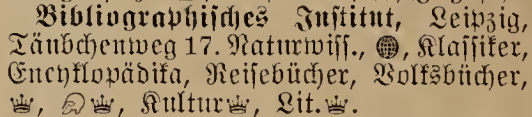 Bibliographisches Institut, Leipzig,
Täubchenweg 17. Naturwiss., 🌐, Klassiker,
Encyklopädika, Reisebücher, Volksbücher,
♕, ♕, Kultur♕, Lit.♕.